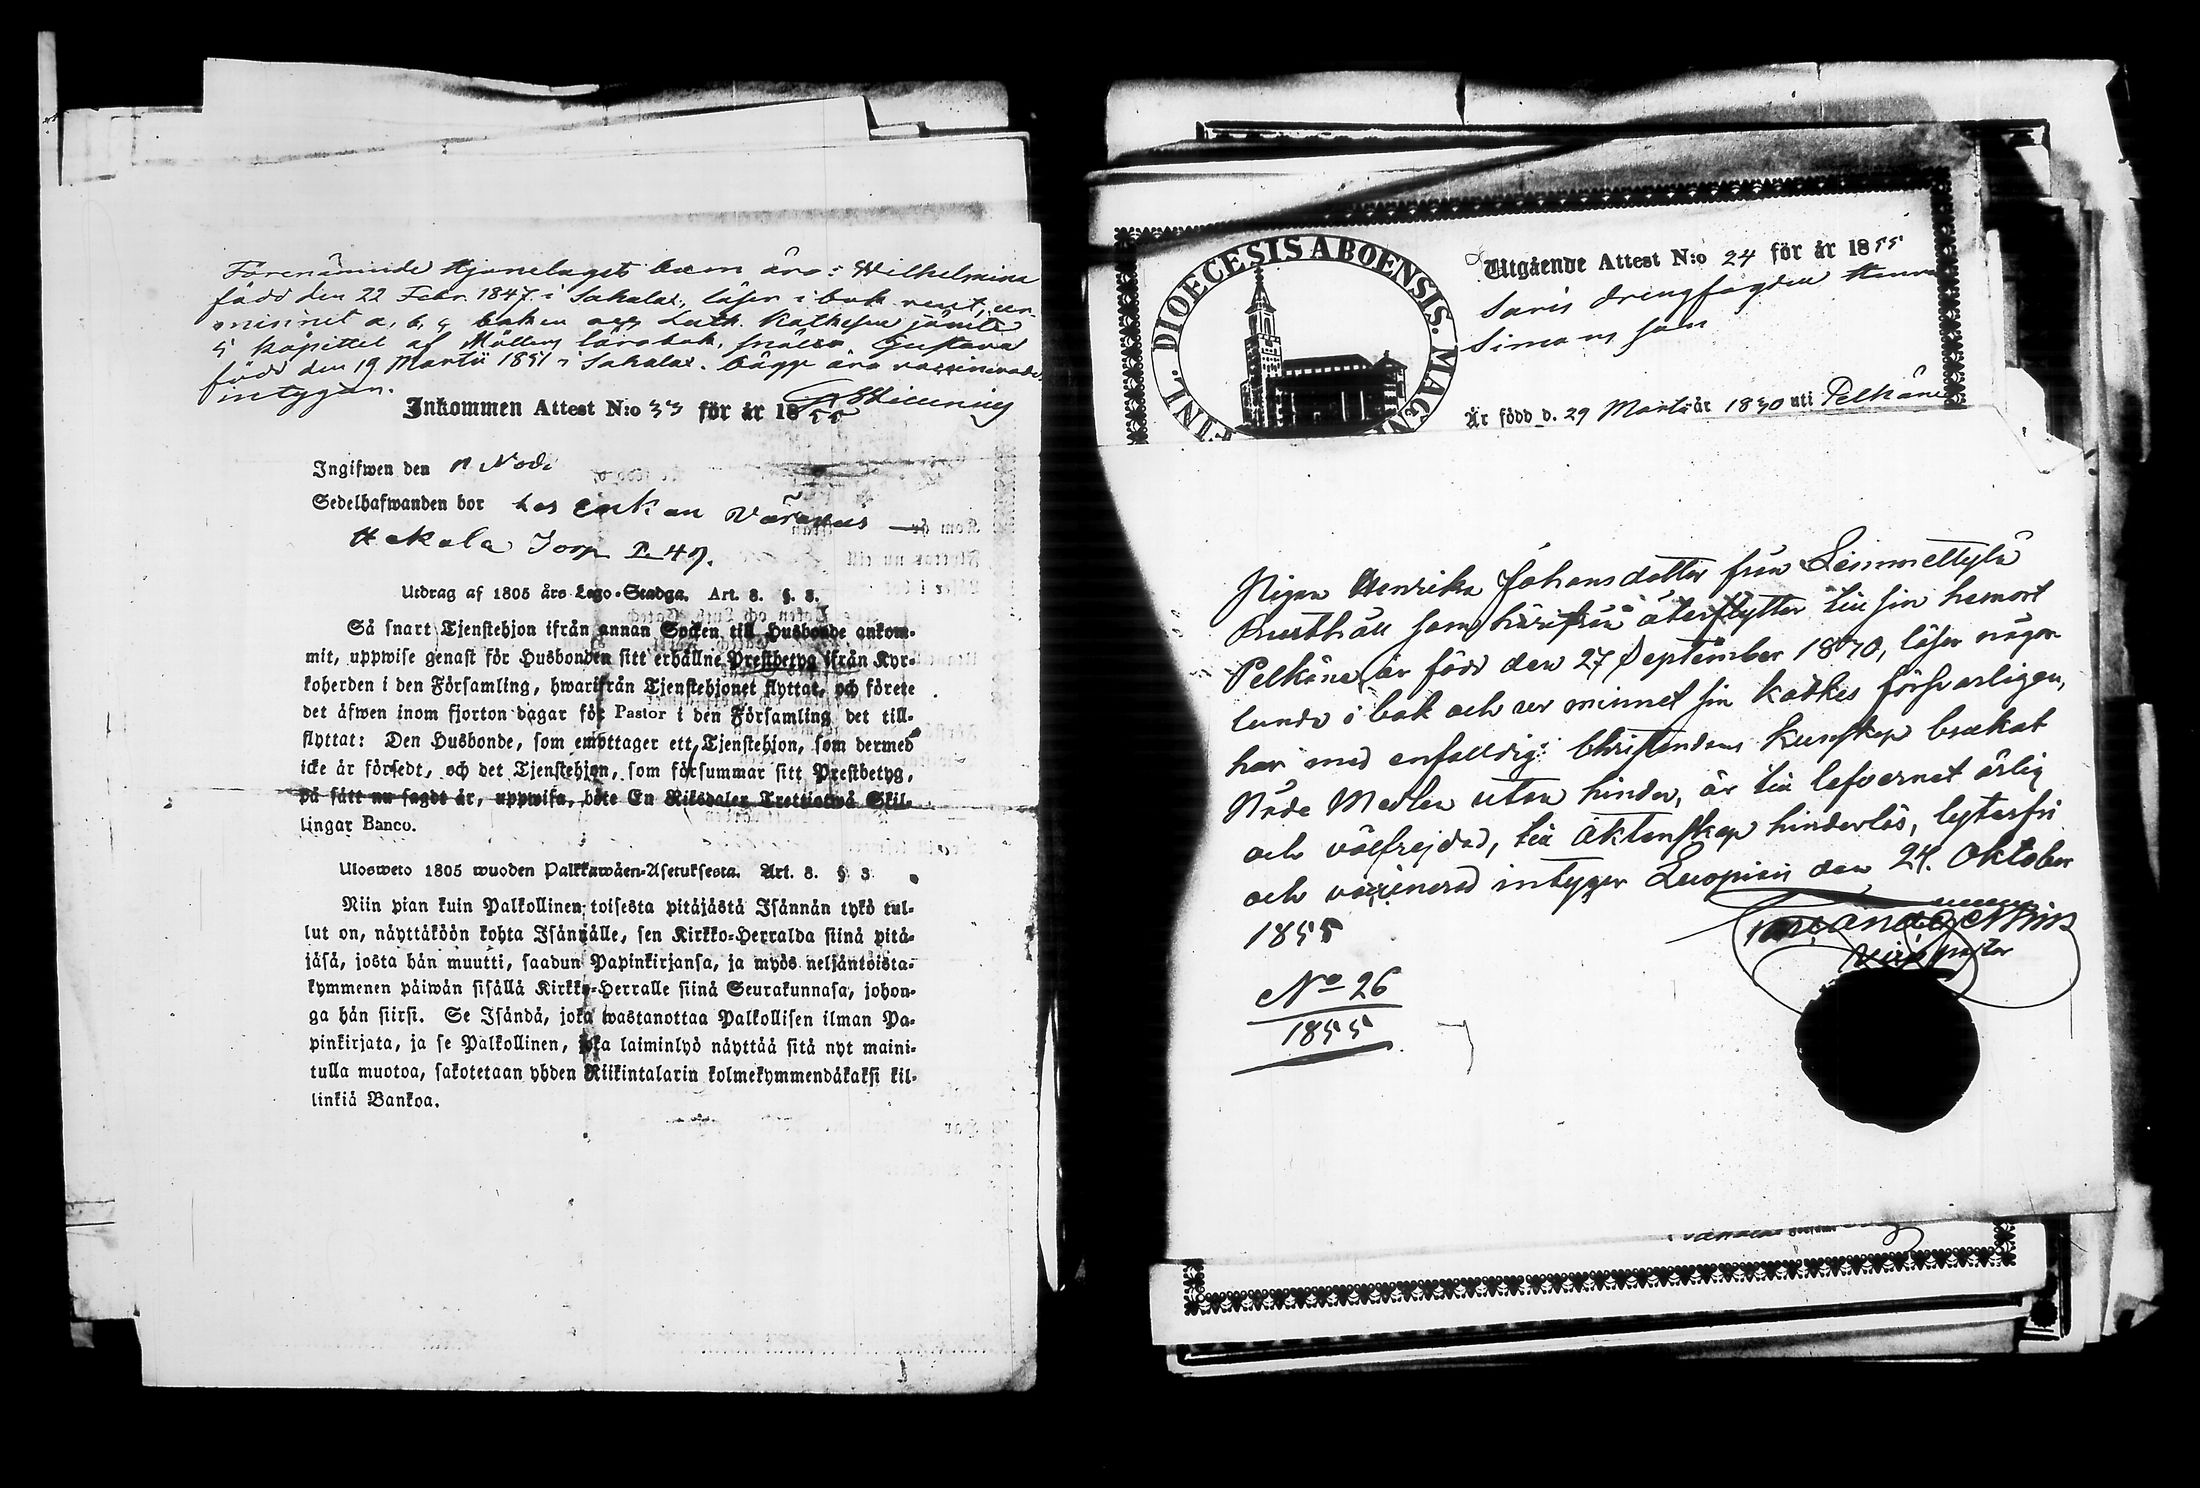 Förenämnde tjenstehjons barn äro: Wilhelmina
född den 22 Febr. 1847 i Sahalax, läser i bok rent, ur
minnet a, b, c boken och Luth. Kathches jämte
5 kapittel af Möllers lärobok, Gustava
född den 19 Martii 1851 i Sahalax. bägge äro vaccinerade,
intygar.
Inkommen Attest N:o 33 för år 1855
Ingifwen den
Sedelhafwanden bor hos Enkan
Hakala Torp P. 49.
Utdrag af 1805 års Lego-Stadga. Art. 8. §. 3.
Så snart Tjenstehjon ifrån annan Socken till Husbonde ankom-
mit, uppwise genast för Husbonden sitt erhållne Prestbetyg ifrån Kyr-
koherden i den Församling, hwarifrån Tjenstehjonet flyttat, och förete
det äfwen inom fjorton dagar för Pastor i den Församling det till-
flyttat: Den Husbonde, som emottager ett Tjenstehjon, som dermed
icke är försedt, och det Tjenstehjon, som försummar sitt Prestbetyg,
på sätt nu sagdt är, uppwisa, böte En Riksdaler Trettiotwå Skil-
lingar Banco.
Ulosweto 1805 wuoden Palkkawäen-Asetuksesta. Art. 8. §. 3
Niin pian kuin Palkollinen toisesta pitäjästä Isännän tykö tul-
lut on, näyttäköön kohta Isännälle, sen Kirkko-Herralda siinä pitä-
jäsä, josta hän muutti, saadun Papinkirjansa, ja myös neljäntoista-
kymmenen päiwän sisällä Kirkko-Herralle siinä Seurakunnasa, johon-
ga hän siirsi. Se Isändä, joka wastanottaa Palkollisen ilman Pa-
pinkirjata, ja se Palkollinen, joka laiminlyö näyttää sitä nyt maini-
tulla muotoa, sakotetaan yhden Riikintalarin kolmekymmendäkaksi kil-
linkiä Bankoa.
DIOECESIS ABOENSIS. MAGNI
FINL.
Utgående Attest N:o 24 för år 1855
Saris drengfogden
Simons son
Är född d. 29 Martii år 1830 uti Pelkäne
Pigan Henrika Johansdotter från Simmettylä
Rusthåll som härifrån återflyttar till sin hemort
Pelkäne, är född den 27 September 1830, läser någor
lunda i bok och ur minnet sin Katkes försvarligen,
har med enfalldig Christendoms kunskap brukat
Nåde Medlen utan hinder, är till lefvernet ärlig
och välfrejdad, till äktenskap hinderlös, lytesfri
och vaccinerad intygar Luopiois den 24. Oktober
1855
Vice pastor
No 26
1855